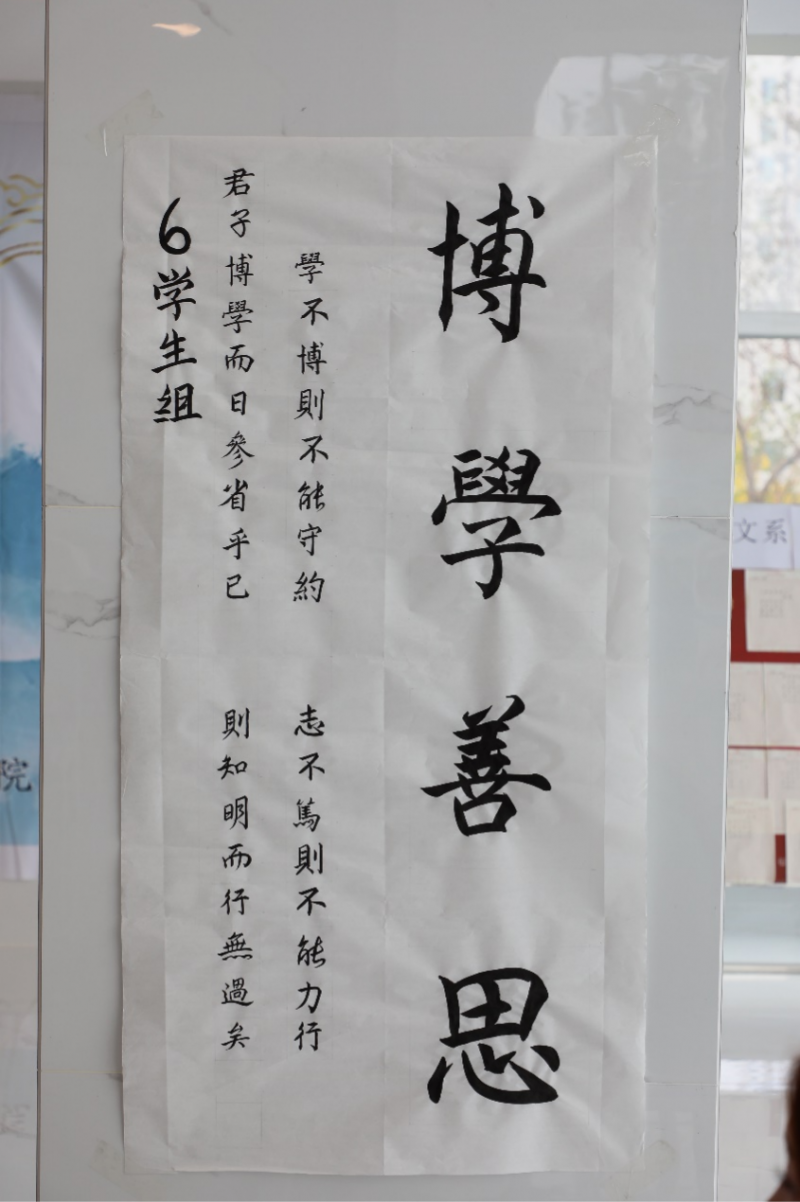 博學善思
學不博則不能守約 志不篤則不能力行
君子博學而日參省乎已 則知明而行無過矣
6学生组
文系
院